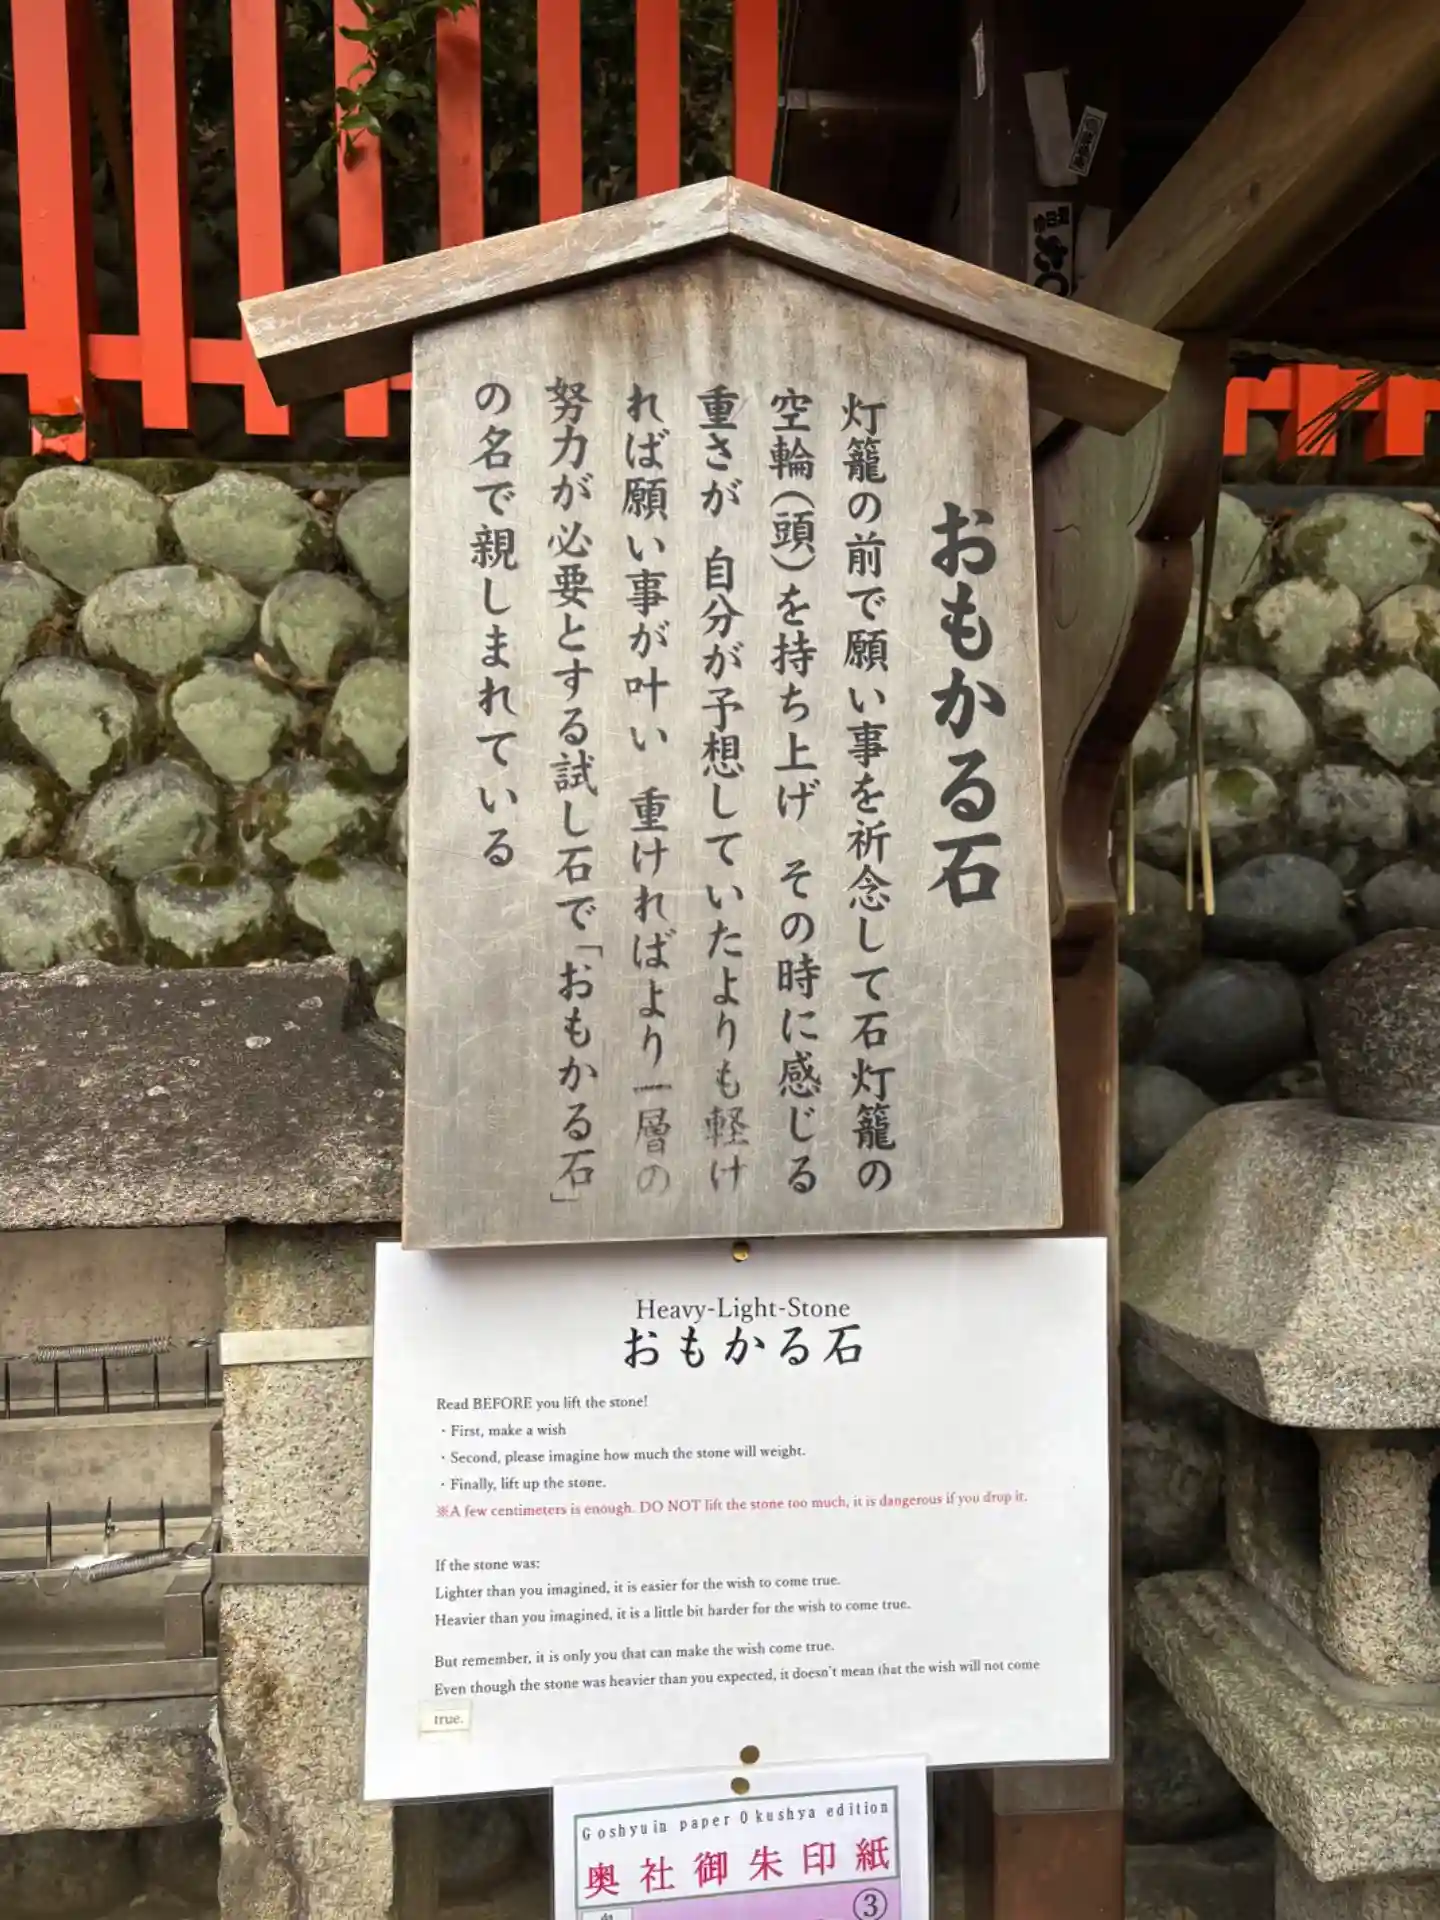 おもかる石
灯籠の前で願い事を祈念して石灯籠の
空輪(頭)を持ち上げ その時に感じる
重さが 自分が予想していたよりも軽け
れば願い事が叶い 重ければより一層の
努力が必要とする試し石で「おもかる石」
の名で親しまれている
Heavy-Light-Stone
おもかる石
Read BEFORE you lift the stone!
・First, make a wish
・Second, please imagine how much the stone will weight.
・Finally, lift up the stone.
※A few centimeters is enough. DO NOT lift the stone too much, it is dangerous if you drop it.
If the stone was:
Lighter than you imagined, it is easier for the wish to come true.
Heavier than you imagined, it is a little bit harder for the wish to come true.
But remember, it is only you that can make the wish come true.
Even though the stone was heavier than you expected, it doesn't mean that the wish will not come
true.
Goshyuin paper Okushya edition
奥社御朱印紙
③